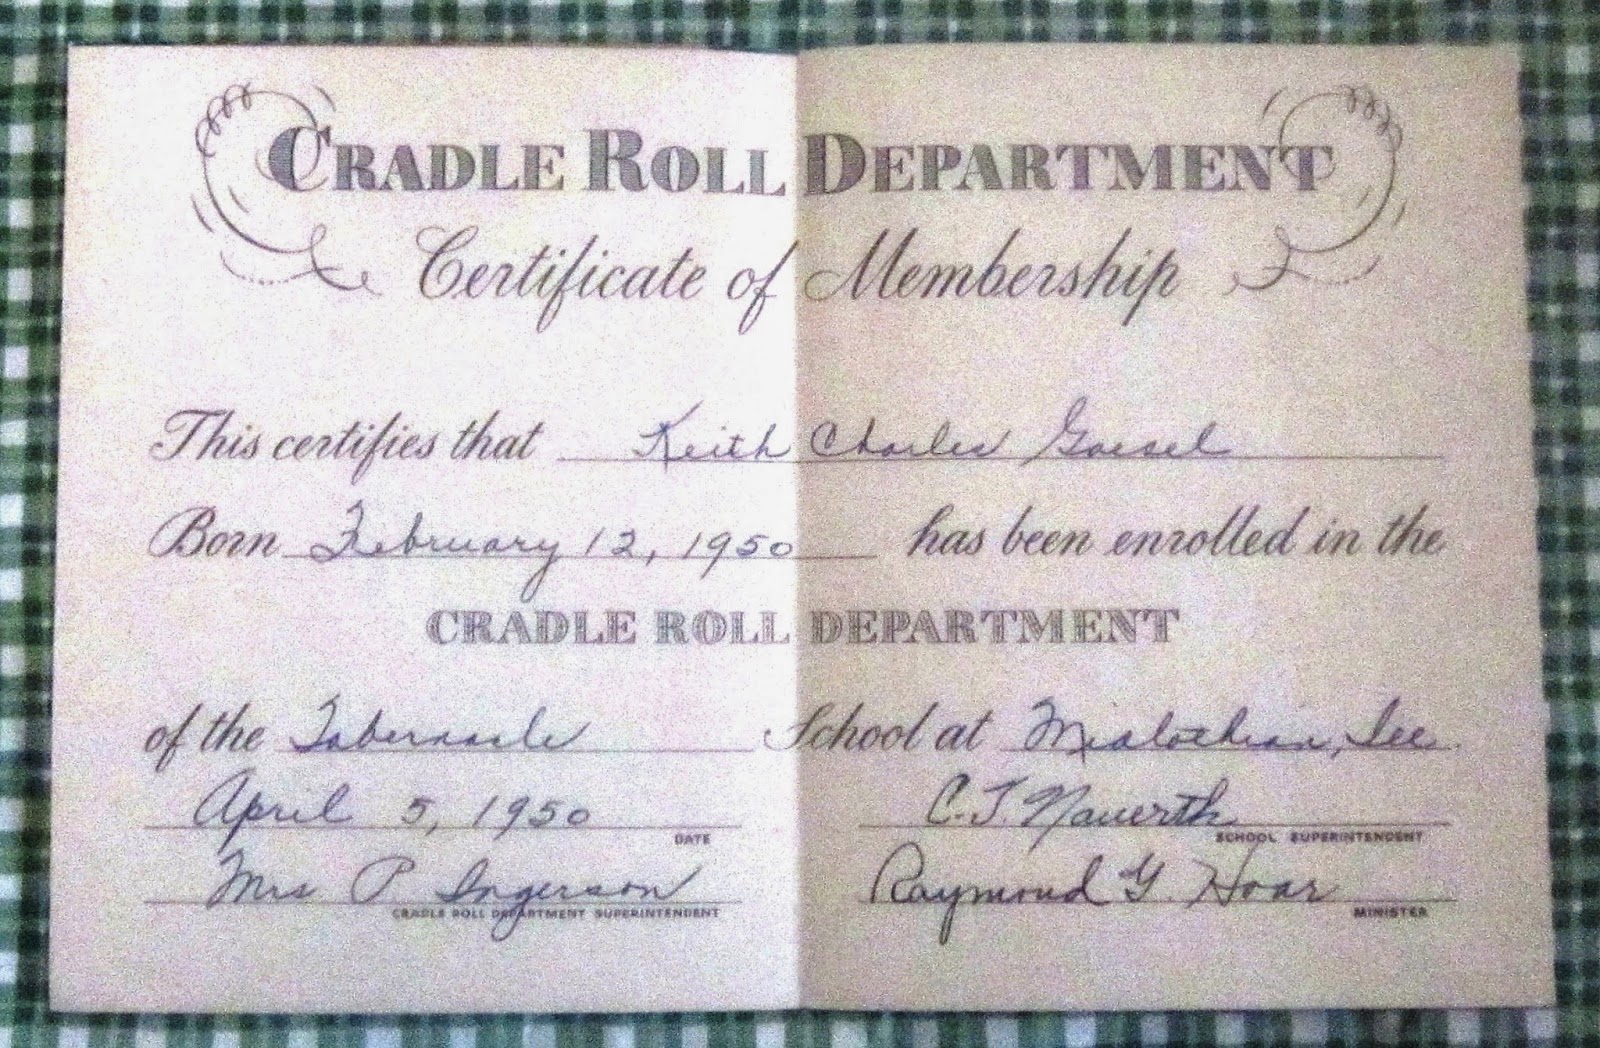 CRADLE ROLL DEPARTMENT
Certificate of Membership
This certifies that Keith Charles Goesel
Born February 12, 1950 has been enrolled in the
CRADLE ROLL DEPARTMENT
of the Tabernacle School at
April 5, 1950 C. J. Nauerth
DATE SCHOOL SUPERINTENDENT
Mrs P Ingerson Raymond G. Hoar
CRADLE ROLL DEPARTMENT SUPERINTENDENT MINISTER